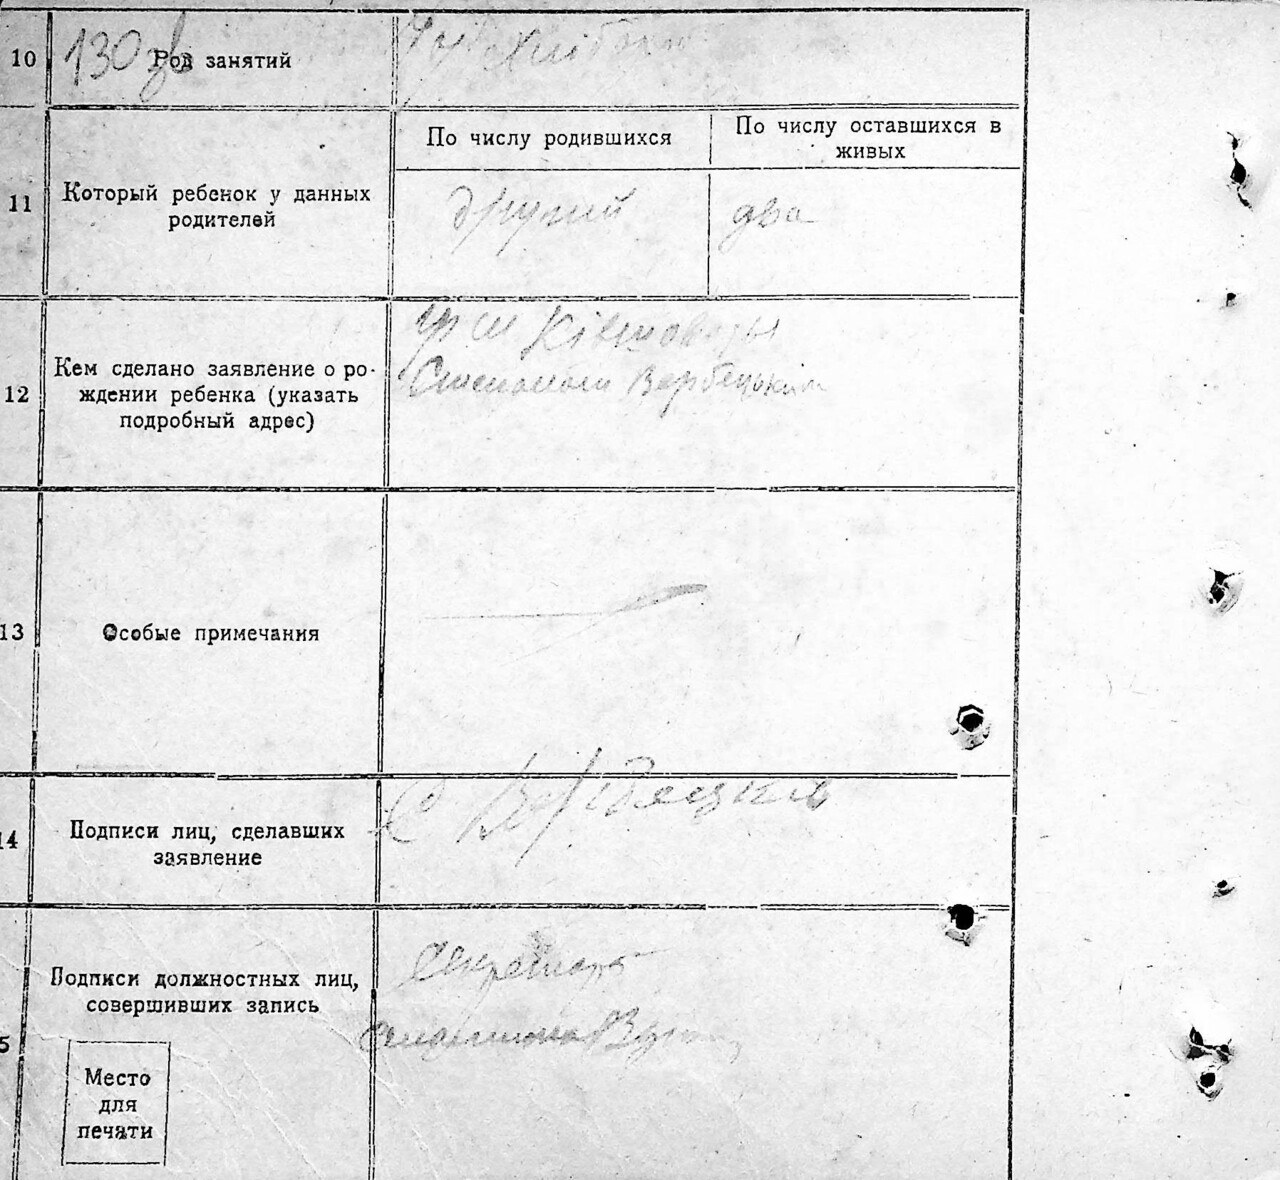 10
130 зв
Род занятий
11
Который ребенок у данных
родителей
По числу родившихся
По числу оставшихся в
живых
другий
два
12
Кем сделано заявление о ро-
ждении ребенка (указать
подробный адрес)
Вербецьким
13
Особые примечания
14
Подписи лиц, сделавших
заявление
С
15
Подписи должностных лиц,
совершивших запись
Место
для
печати
Секретарь